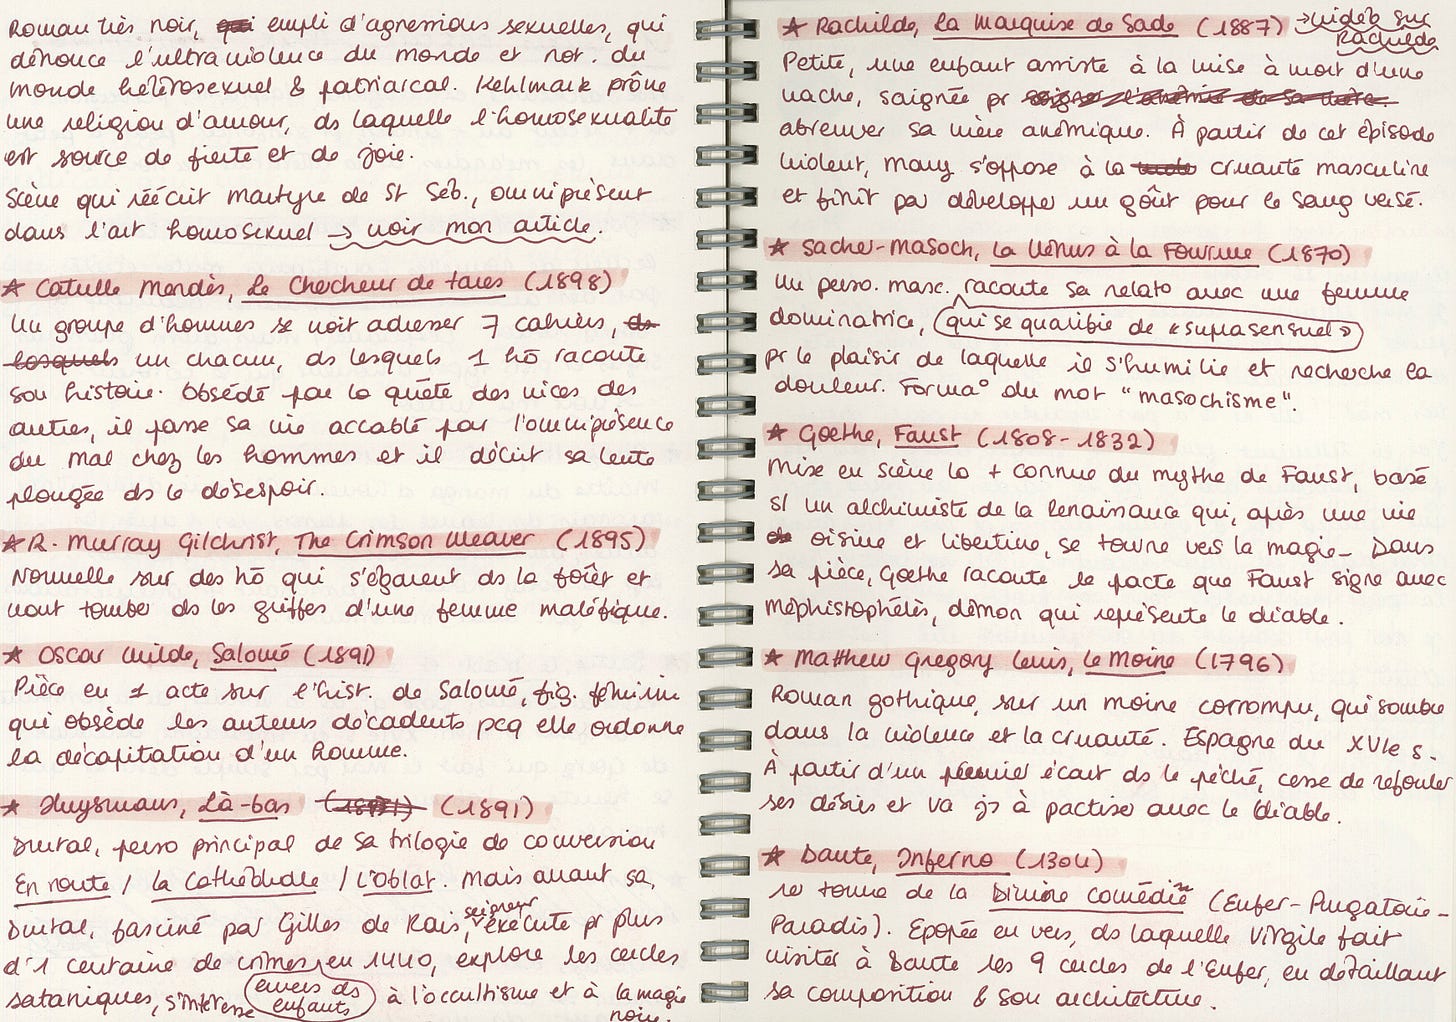 Roman très noir, empli d'agressions sexuelles, qui
dénonce l'ultraviolence du monde et not. du
monde hétérosexuel & patriarcal. Kehlmark prône
une religion d'amour, ds laquelle l'homosexualité
est source de fierté et de joie.
Scène qui réécrit martyre de St Séb., omniprésent
dans l'art homosexuel → voir mon article.
★ Catulle Mendès, Le Chercheur de tares (1898)
Un groupe d'hommes se voit adresser 7 cahiers, ds
lesquels un chacun, ds lesquels 1 hô raconte
son histoire. Obsédé par la quête des vices des
autres, il passe sa vie accablé par l'omniprésence
du mal chez les hommes et il décrit sa lente
plongée ds le désespoir.
★ R. Murray Gilchrist, The Crimson Weaver (1895)
Nouvelle sur des hô qui s'égarent ds la forêt et
vont tomber ds les griffes d'une femme maléfique.
★ Oscar Wilde, Salomé (1891)
Pièce en 1 acte sur l'hist. de Salomé, fig. féminine
qui obsède les auteurs décadents pcq elle ordonne
la décapitation d'un homme.
★ Huysmans, Là-bas (1891)
Durtal, perso principal de sa trilogie de conversion
En route / La Cathédrale / L'Oblat. Mais avant ça,
Durtal, fasciné par Gilles de Rais, seigneur exécuté pr plus
d'1 centaine de crimes en 1440, explore les cercles
envers ds enfants
sataniques, s'intéresse à l'occultisme et à la magie
noire.
★ Rachilde, La Marquise de Sade (1887) → vidéo sur
Rachilde
Petite, une enfant assiste à la mise à mort d'une
vache, saignée pr
abreuver sa mère anémique. À partir de cet épisode
violent, Mary s'oppose à la cruauté masculine
et finit par développer un goût pour le sang versé.
★ Sacher-Masoch, La Vénus à la Fourrure (1870)
Un perso. masc. raconte sa relat° avec une femme
dominatrice, qui se qualifie de « suprasensuel »
pr le plaisir de laquelle il s'humilie et recherche la
douleur. Forma° du mot "masochisme".
★ Goethe, Faust (1808-1832)
Mise en scène la + connue du mythe de Faust, basé
sr un alchimiste de la Renaissance qui, après une vie
oisive et libertine, se tourne vers la magie. Dans
sa pièce, Goethe raconte le pacte que Faust signe avec
Méphistophélès, démon qui représente le diable.
★ Matthew Gregory Lewis, Le Moine (1796)
Roman gothique, sur un moine corrompu, qui sombre
dans la violence et la cruauté. Espagne du XVIe s.
À partir d'un premier écart ds le péché, cesse de refouler
ses désirs et va jsq à pactiser avec le diable.
★ Dante, Inferno (1304)
1e tome de la Divine Comédie (Enfer-Purgatoire-
Paradis). Épopée en vers, ds laquelle Virgile fait
visiter à Dante les 9 cercles de l'Enfer, en détaillant
sa composition & son architecture.